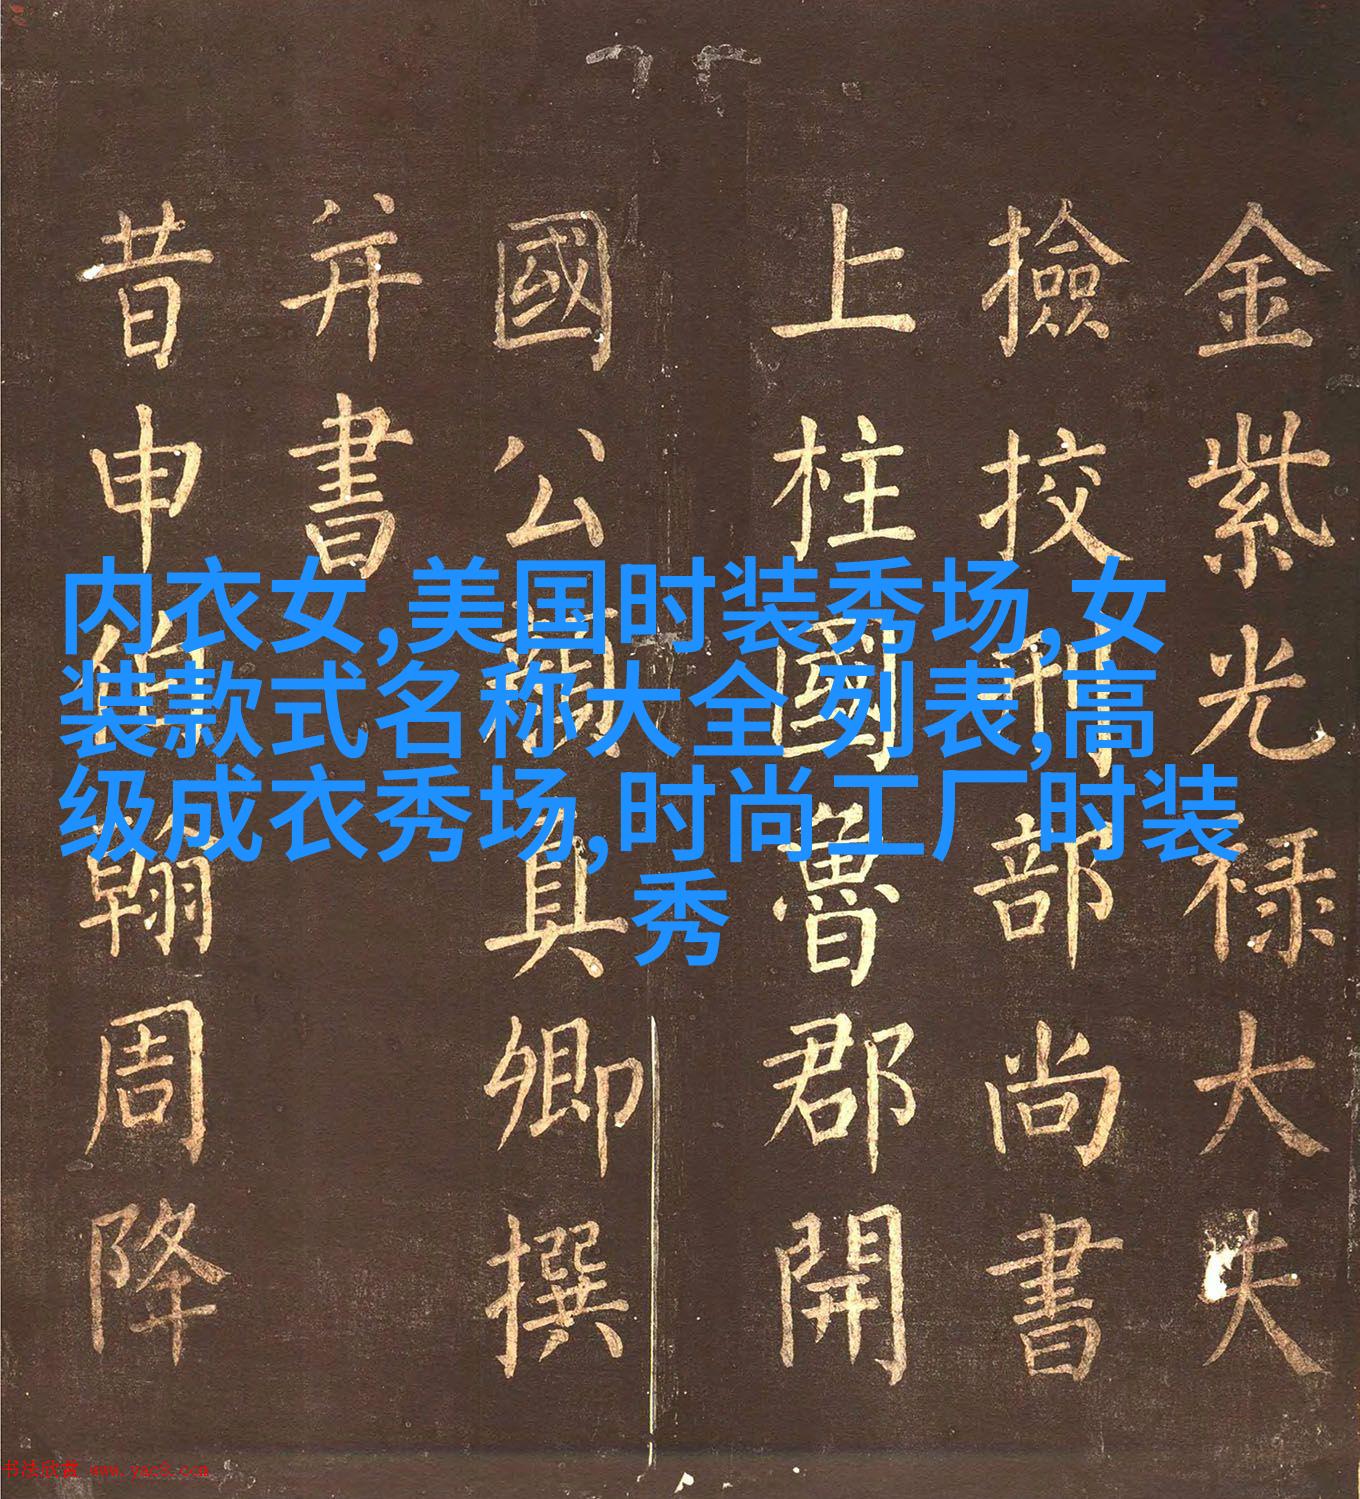 金紫光禄大夫
撿挍刑部尚書
上柱國魯郡開
國公真卿撰
并書
昔申伯翰周降
内衣女,美国时装秀场,女
装款式名称大全列表,高
级成衣秀场,时尚工厂时装
秀
书法欣赏 www.yac8.com